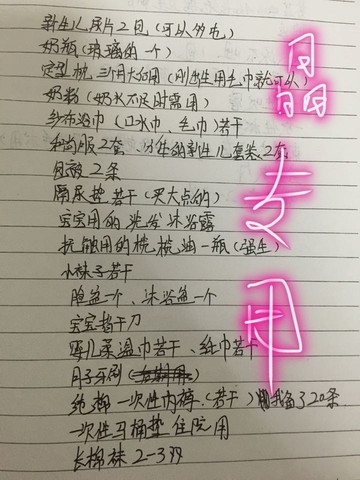 新生儿尿片2包(可以外包)
奶瓶(玻璃的一个)
定型枕 三个月大的用(刚出生用毛巾就可以)
奶粉(奶水不足时需用)
纱布浴巾(口水巾、毛巾)若干
和尚服2套、分体的新生儿套装2套
包被2条
隔尿垫若干(买大点的)
宝宝用的洗发沐浴露
抚触用的橄榄油一瓶(强生)
小袜子若干
脸盆一个、沐浴盆一个
宝宝指甲刀
婴儿柔湿巾若干、纸巾若干
月子牙刷
纯棉一次性内裤(若干)我备了20条
一次性马桶垫 住院用
长棉袜 2-3双
晶
专
用